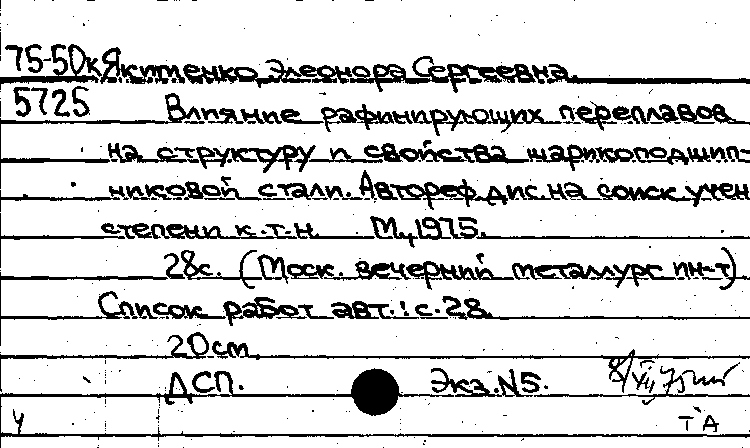 75-50к Якименко, Элеонора Сергеевна.
5725 Влияние рафинирующих переплавов
на структуру и свойства шарикоподшип-
никовой стали. Автореф. дис. на соиск. учен
степени к.т.н. М., 1975.
28с. (Моск. вечерний металлург ин-т)
Список работ авт.: с. 28.
20см.
ДСП. Экз. N5.
ТА